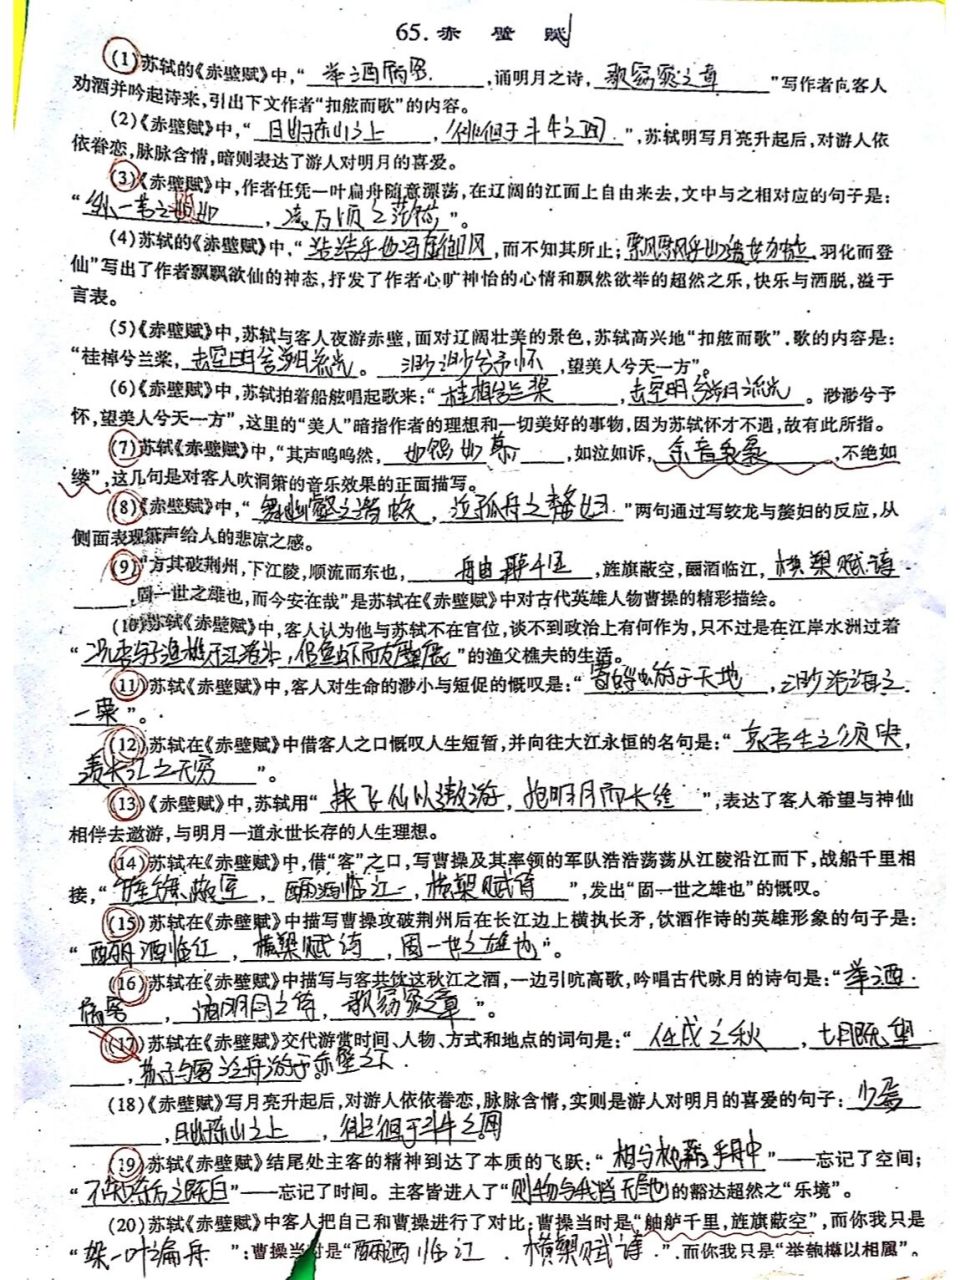 65.赤 壁 赋
(1)苏轼的《赤壁赋》中,“ 举酒属客 ,诵明月之诗, 歌窈窕之章 ”写作者向客人
劝酒并吟起诗来,引出下文作者“扣舷而歌”的内容。
(2)《赤壁赋》中,“ 月出于东山之上 , 徘徊于斗牛之间 ”,苏轼明写月亮升起后,对游人依
依眷恋,脉脉含情,暗则表达了游人对明月的喜爱。
(3)《赤壁赋》中,作者任凭一叶扁舟随意漂荡,在辽阔的江面上自由来去,文中与之相对应的句子是:
“ 纵一苇之所如 , 凌万顷之茫然 ”。
(4)苏轼的《赤壁赋》中,“ 浩浩乎如冯虚御风 ,而不知其所止; 飘飘乎如遗世独立 ,羽化而登
仙”写出了作者飘飘欲仙的神态,抒发了作者心旷神怡的心情和飘然欲举的超然之乐,快乐与洒脱,溢于
言表。
(5)《赤壁赋》中,苏轼与客人夜游赤壁,面对辽阔壮美的景色,苏轼高兴地“扣舷而歌”.歌的内容是:
“桂棹兮兰桨, 击空明兮溯流光 。 渺渺兮予怀 ,望美人兮天一方”。
(6)《赤壁赋》中,苏轼拍着船舷唱起歌来:“ 桂棹兮兰桨 , 击空明兮溯流光 。渺渺兮予
怀,望美人兮天一方”,这里的“美人”暗指作者的理想和一切美好的事物,因为苏轼怀才不遇,故有此所指。
(7)苏轼《赤壁赋》中,“其声呜呜然, 如怨如慕 ,如泣如诉, 余音袅袅 ,不绝如
缕”,这几句是对客人吹洞箫的音乐效果的正面描写。
(8)《赤壁赋》中,“ 舞幽壑之潜蛟 , 泣孤舟之嫠妇 ”两句通过写蛟龙与嫠妇的反应,从
侧面表现箫声给人的悲凉之感。
(9)“方其破荆州,下江陵,顺流而东也, 舳舻千里 ,旌旗蔽空,酾酒临江, 横槊赋诗
,固一世之雄也,而今安在哉”是苏轼在《赤壁赋》中对古代英雄人物曹操的精彩描绘。
(10)苏轼《赤壁赋》中,客人认为他与苏轼不在官位,谈不到政治上有何作为,只不过是在江岸水洲过着
“ 况吾与子渔樵于江渚上 , 侣鱼虾而友麋鹿 ”的渔父樵夫的生活。
(11)苏轼《赤壁赋》中,客人对生命的渺小与短促的慨叹是:“ 寄蜉蝣于天地 , 渺沧海之
一粟 ”。
(12)苏轼在《赤壁赋》中借客人之口慨叹人生短暂,并向往大江永恒的名句是:“ 哀吾生之须臾 ,
羡长江之无穷 ”。
(13)《赤壁赋》中,苏轼用“ 挟飞仙以遨游 , 抱明月而长终 ”,表达了客人希望与神仙
相伴去遨游,与明月一道永世长存的人生理想。
(14)苏轼在《赤壁赋》中,借“客”之口,写曹操及其率领的军队浩浩荡荡从江陵沿江而下,战船千里相
接,“ 旌旗蔽空 , 酾酒临江 , 横槊赋诗 ”,发出“固一世之雄也”的慨叹。
(15)苏轼在《赤壁赋》中描写曹操攻破荆州后在长江边上横执长矛,饮酒作诗的英雄形象的句子是:
“ 酾酒临江 , 横槊赋诗 , 固一世之雄也 ”。
(16)苏轼在《赤壁赋》中描写与客共饮这秋江之酒,一边引吭高歌,吟唱古代咏月的诗句是:“ 举酒
属客 , 诵明月之诗 , 歌窈窕之章 ”。
(17)苏轼在《赤壁赋》交代游赏时间、人物、方式和地点的词句是:“ 任戌之秋 , 七月既望
, 苏子与客泛舟游于赤壁之下
(18)《赤壁赋》写月亮升起后,对游人依依眷恋,脉脉含情,实则是游人对明月的喜爱的句子: 少焉
, 月出于东山之上 , 徘徊于斗牛之间
(19)苏轼《赤壁赋》结尾处主客的精神到达了本质的飞跃:“ 相与枕藉乎舟中 ”——忘记了空间;
“ 不知东方之既白 ”——忘记了时间。主客皆进入了“ 则物与我皆无尽也 的豁达超然之“乐境”。
(20)苏轼《赤壁赋》中客人把自己和曹操进行了对比:曹操当时是“舳舻千里,旌旗蔽空”,而你我只是
“ 架一叶之扁舟 ”;曹操当时是“ 酾酒临江 , 横槊赋诗 ”.而你我只是“举匏樽以相属”。